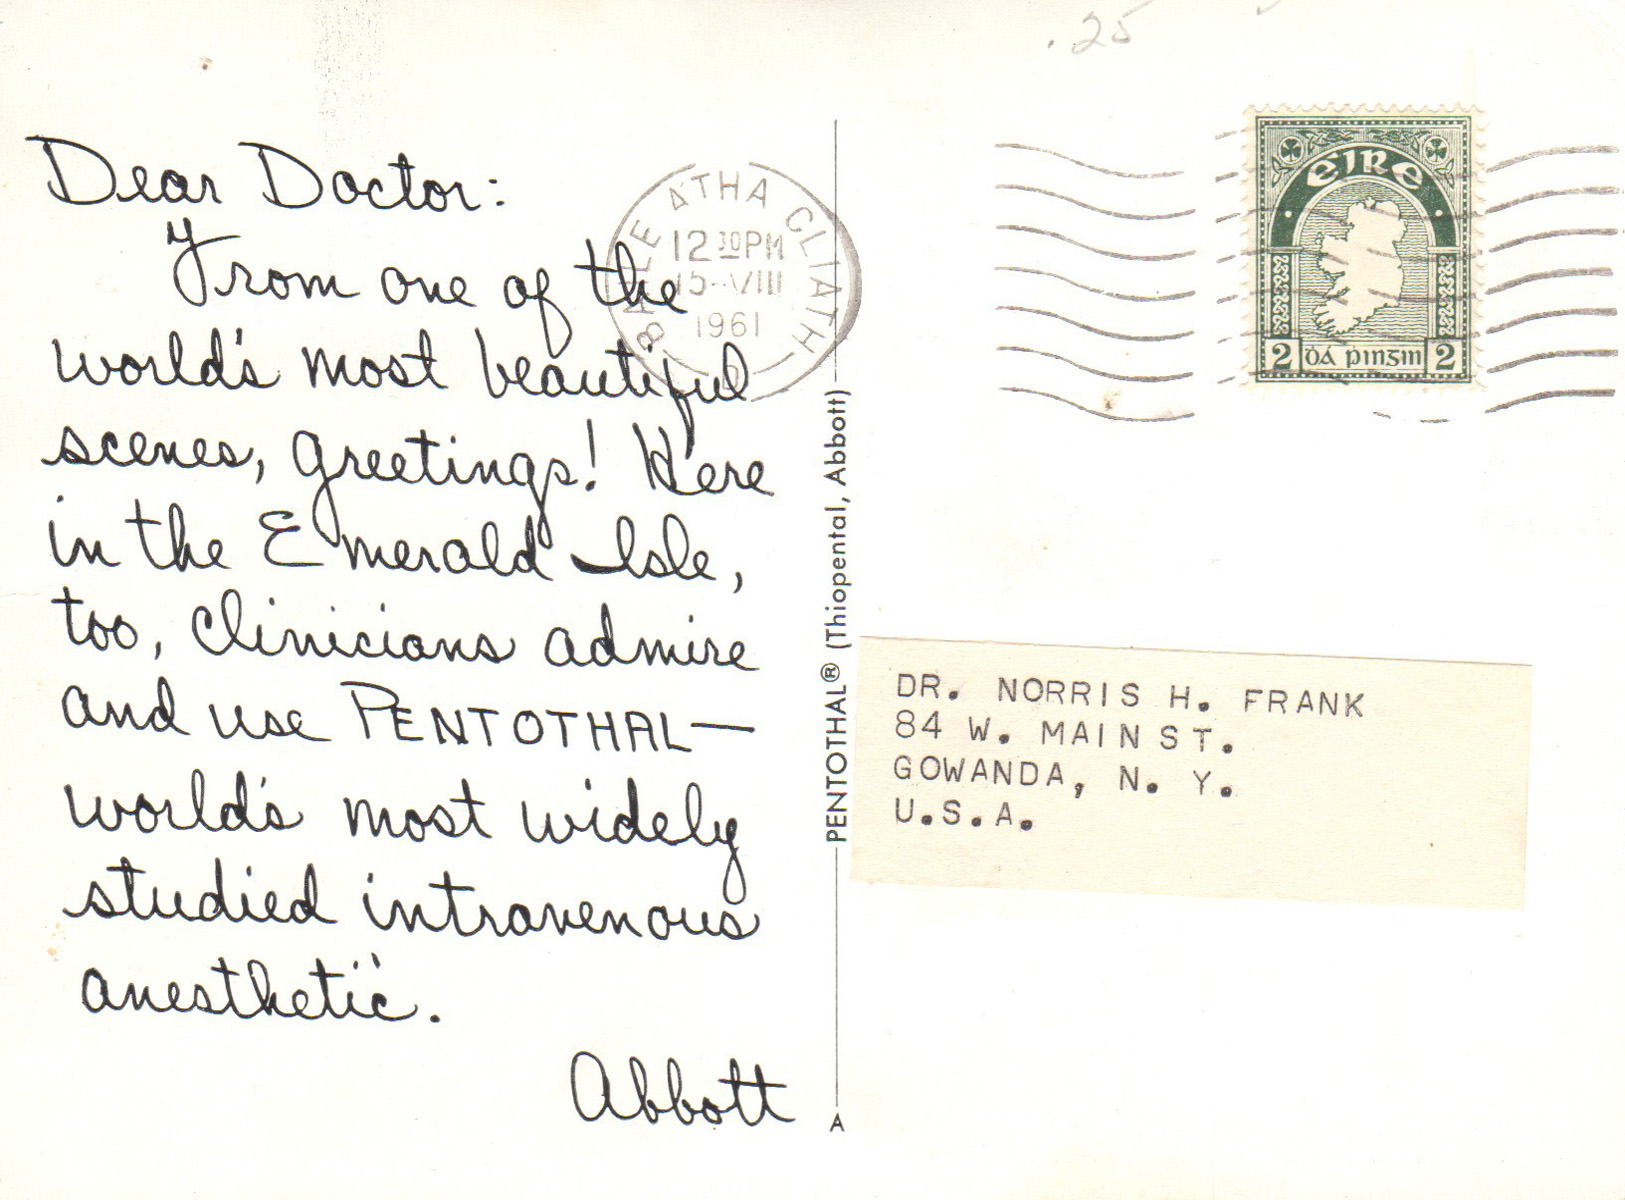 .25
Dear Doctor:
From one of the
world's most beautiful
scenes, greetings! Here
in the Emerald Isle,
too, clinicians admire
and use PENTOTHAL—
world's most widely
studied intravenous
anesthetic.
Abbott
BAILE ÁTHA CLIATH
12 30 PM
15 VIII
1961
PENTOTHAL® (Thiopental, Abbott)
A
éire
2 ḋá pinġin 2
DR. NORRIS H. FRANK
84 W. MAIN ST.
GOWANDA, N. Y.
U.S.A.